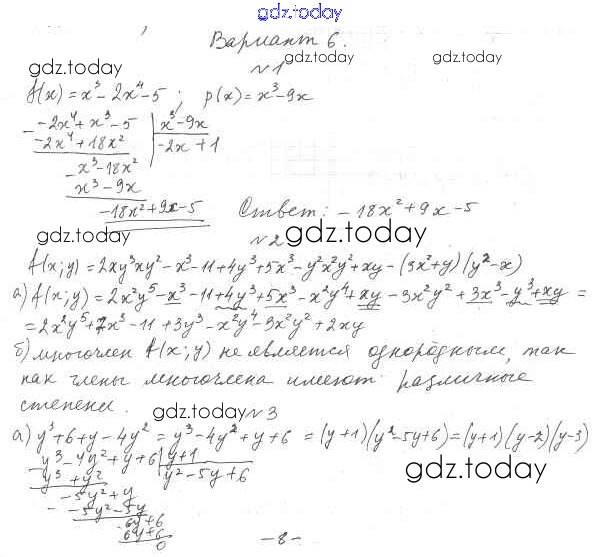 gdz.today
Вариант 6.
gdz.today gdz.today
№1
f(x)=x³-2x⁴-5; p(x)=x³-9x
-2x⁴+x³-5 | x³-9x
-2x⁴+18x² | -2x+1
x³-18x²
x³-9x
-18x²+9x-5 Ответ: -18x²+9x-5
gdz.today №2 gdz.today
f(x;y)=2xy³xy²-x³-11+4y³+5x³-y²x²y²+xy-(3x²+y)(y²-x)
а) f(x;y)=2x²y⁵-x³-11+4y³+5x³-x²y⁴+xy-3x²y²+3x³-y³+xy=
=2x²y⁵+7x³-11+3y³-x²y⁴-3x²y²+2xy
б) многочлен f(x;y) не является однородным, так
как члены многочлена имеют различные
степени.
gdz.today №3
а) y³+6+y-4y²=y³-4y²+y+6=(y+1)(y²-5y+6)=(y+1)(y-2)(y-3)
y³-4y²+y+6 | y+1
y³+y² | y²-5y+6
-5y²+y
-5y²-5y
6y+6
6y+6
0
gdz.today
gdz.today
-8-